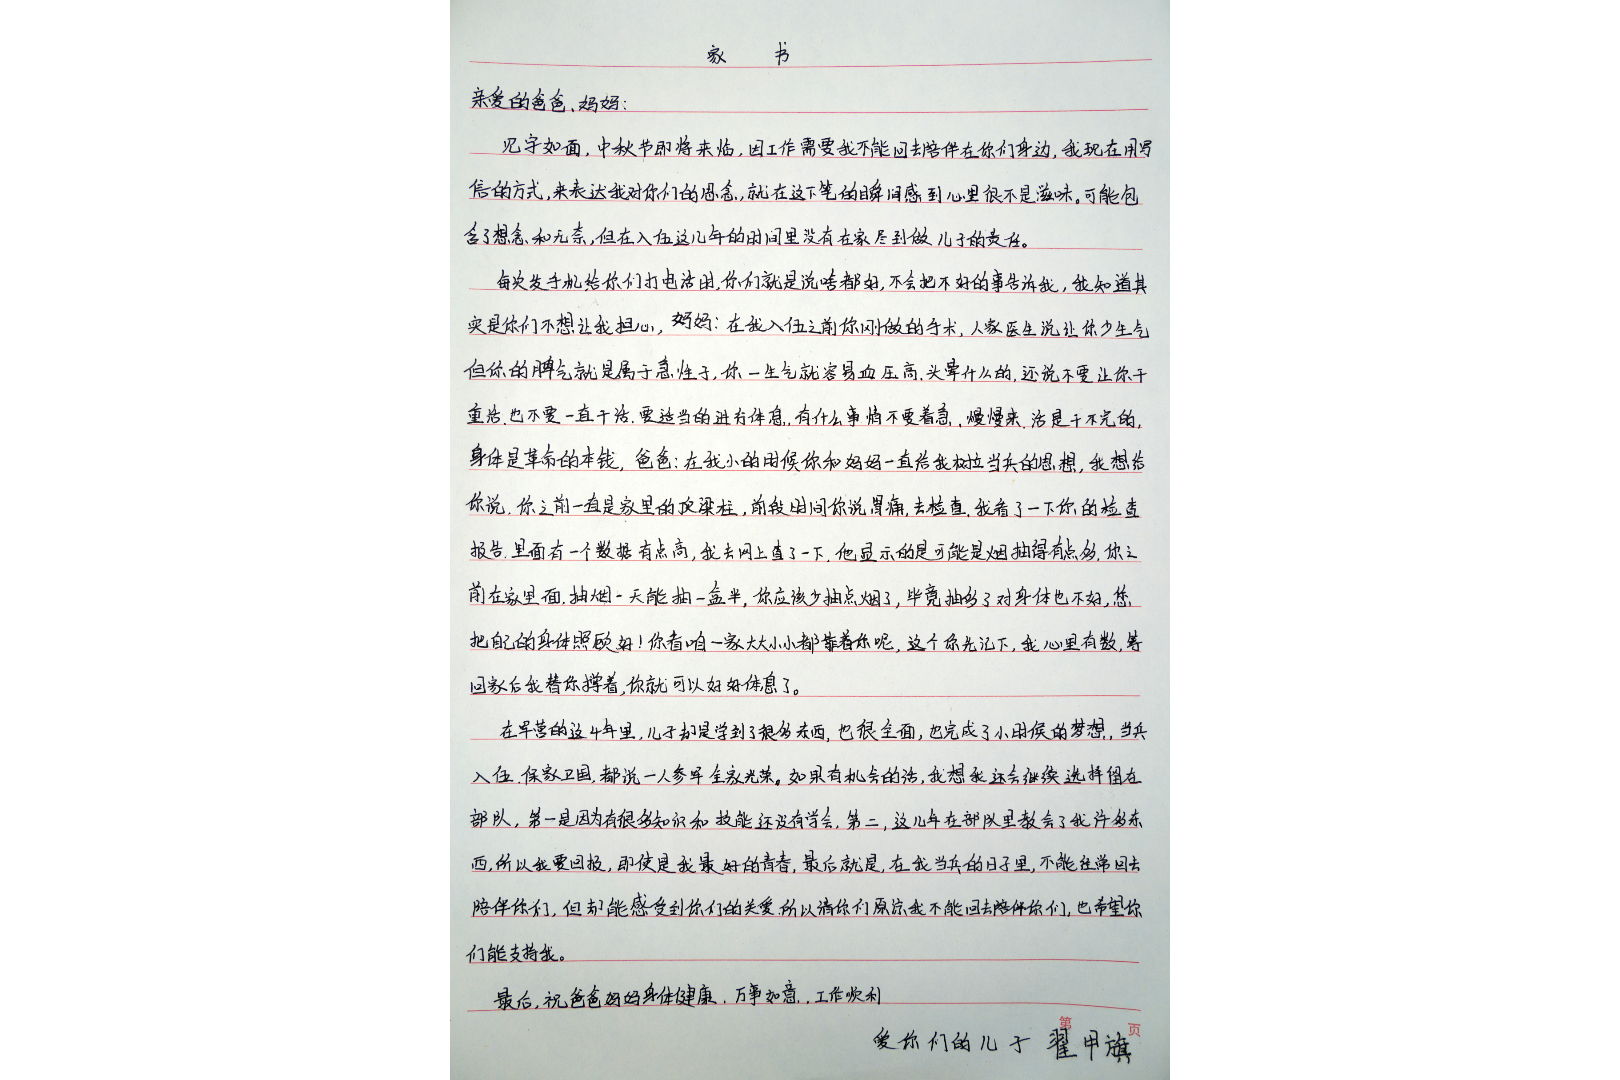 家 书
亲爱的爸爸、妈妈：
见字如面，中秋节即将来临，因工作需要我不能回去陪伴在你们身边，我现在用写
信的方式，来表达我对你们的思念，就在这下笔的瞬间感到心里很不是滋味。可能包
含了想念和无奈，但在入伍这几年的时间里没有在家尽到做儿子的责任。
每次发手机给你们打电话时，你们就是说啥都好，不会把不好的事告诉我，我知道其
实是你们不想让我担心，妈妈：在我入伍之前你刚做的手术，人家医生说让你少生气
但你的脾气就是属于急性子，你一生气就容易血压高，头晕什么的，还说不要让你干
重活，也不要一直干活，要适当的进行休息，有什么事情不要着急，慢慢来，活是干不完的，
身体是革命的本钱，爸爸：在我小的时候你和妈妈一直给我树立当兵的思想，我想给
你说，你之前一直是家里的顶梁柱，前段时间你说胃痛，去检查，我看了一下你的检查
报告，里面有一个数据有点高，我去网上查了一下，他显示的是可能是烟抽得有点多，你之
前在家里面，抽烟一天能抽一盒半，你应该少抽点烟了，毕竟抽多了对身体也不好，您
把自己的身体照顾好！你看咱一家大大小小都靠着你呢，这个你先记下，我心里有数，等
回家后我替你撑着，你就可以好好休息了。
在军营的这4年里，儿子却是学到了很多东西，也很全面，也完成了小时候的梦想，当兵
入伍，保家卫国，都说一人参军全家光荣。如果有机会的话，我想我还会继续选择留在
部队，第一是因为有很多知识和技能还没有学会，第二，这几年在部队里教会了我许多东
西，所以我要回报，即使是我最好的青春，最后就是，在我当兵的日子里，不能经常回去
陪伴你们，但却能感受到你们的关爱，所以请你们原谅我不能回去陪伴你们，也希望你
们能支持我。
最后，祝爸爸妈妈身体健康，万事如意，工作顺利
第 页
爱你们的儿子 翟甲旗